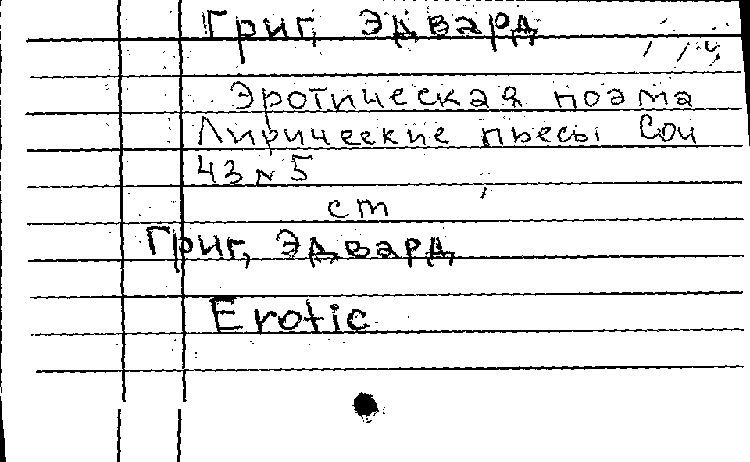 Григ, Эдвард
Эротическая поэма
Лирические пьесы Соч
43 № 5
ст
Григ, Эдвард
Erotic